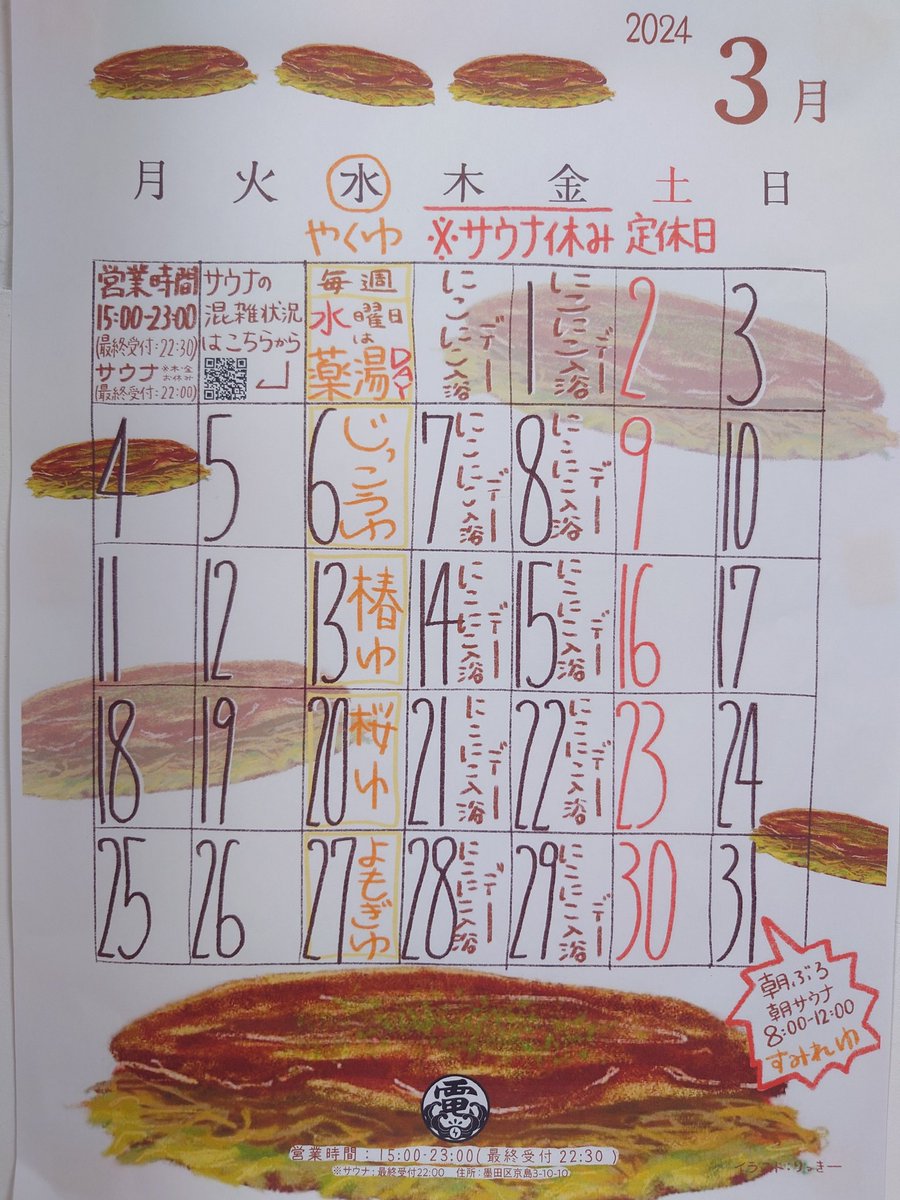 2024
3月
月 火 水 木 金 土 日
やくゆ ※サウナ休み 定休日
営業時間
15:00-23:00
(最終受付:22:30)
サウナ ※木・金お休み
(最終受付:22:00)
サウナの
混雑状況
はこちらから
毎週
水曜日
は
薬湯DAY
にこにこ入浴デー
1 にこにこ入浴デー
2
3
4
5
6 じっこうゆ
7 にこにこ入浴デー
8 にこにこ入浴デー
9
10
11
12
13 椿ゆ
14 にこにこ入浴デー
15 にこにこ入浴デー
16
17
18
19
20 桜ゆ
21 にこにこ入浴デー
22 にこにこ入浴デー
23
24
25
26
27 よもぎゆ
28 にこにこ入浴デー
29 にこにこ入浴デー
30
31
朝ぶろ
朝サウナ
8:00-12:00
すみれゆ
電
営業時間:15:00-23:00(最終受付 22:30)
※サウナ:最終受付22:00 住所:墨田区京島3-10-10
イラスト:りっきー